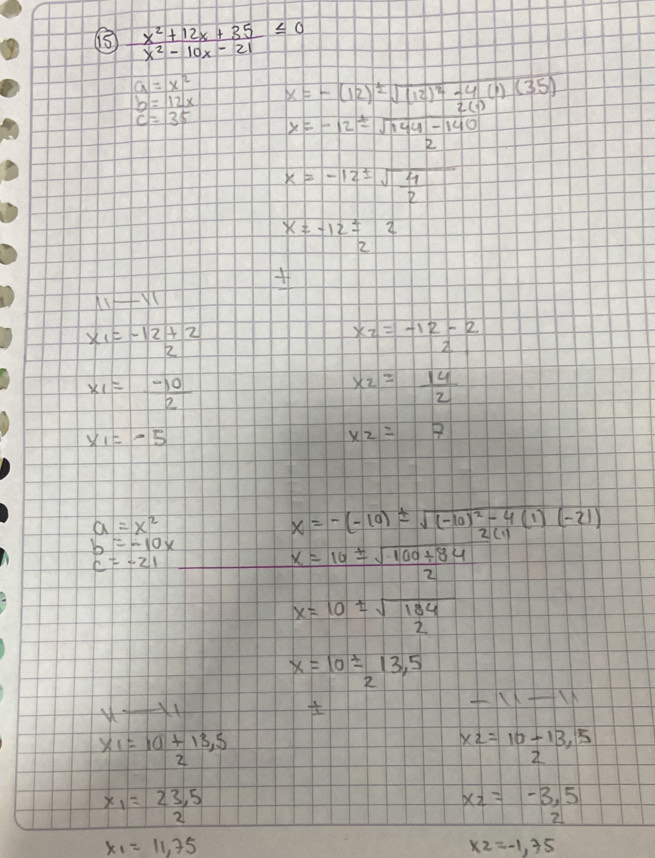 15) x² + 12x + 35 / x² - 10x - 21 ≤ 0
a = x²
b = 12x
c = 35
x = -(12) ± √(12)² - 4(1)(35) / 2(1)
x = -12 ± √144 - 140 / 2
x = -12 ± √4 / 2
x = -12 ± 2 / 2
±
x1 = -12 + 2 / 2
x2 = -12 - 2 / 2
x1 = -10 / 2
x2 = 14 / 2
x1 = -5
x2 = 7
a = x²
b = -10x
c = -21
x = -(-10) ± √(-10)² - 4(1)(-21) / 2(1)
x = 10 ± √100 + 84 / 2
x = 10 ± √184 / 2
x = 10 ± 13,5 / 2
±
x1 = 10 + 13,5 / 2
x2 = 10 - 13,5 / 2
x1 = 23,5 / 2
x2 = -3,5 / 2
x1 = 11,75
x2 = -1,75